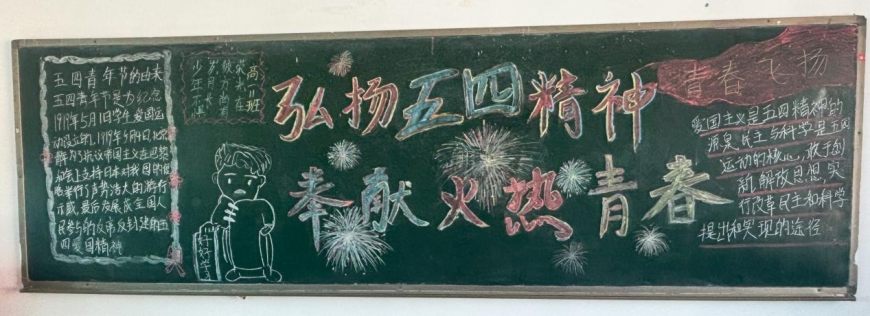 五四青年节的由来
五四青年节是为纪念
1919年5月4日学生爱国运
动设立的,1919年5月4日,北京
学生为了抗议帝国主义在巴黎
和会上支持日本对我国的侵
略举行了声势浩大的游行
示威,最后发展成全国人
民参与的反帝反封建的五
四爱国精神
少年
岁月
高
班
好好学习
弘扬五四精神
奉献火热青春
青春飞扬
爱国主义是五四精神的
源泉,民主与科学是五四
运动的核心,敢于创
新,解放思想,实
行改革民主和科学
提出和实现的途径